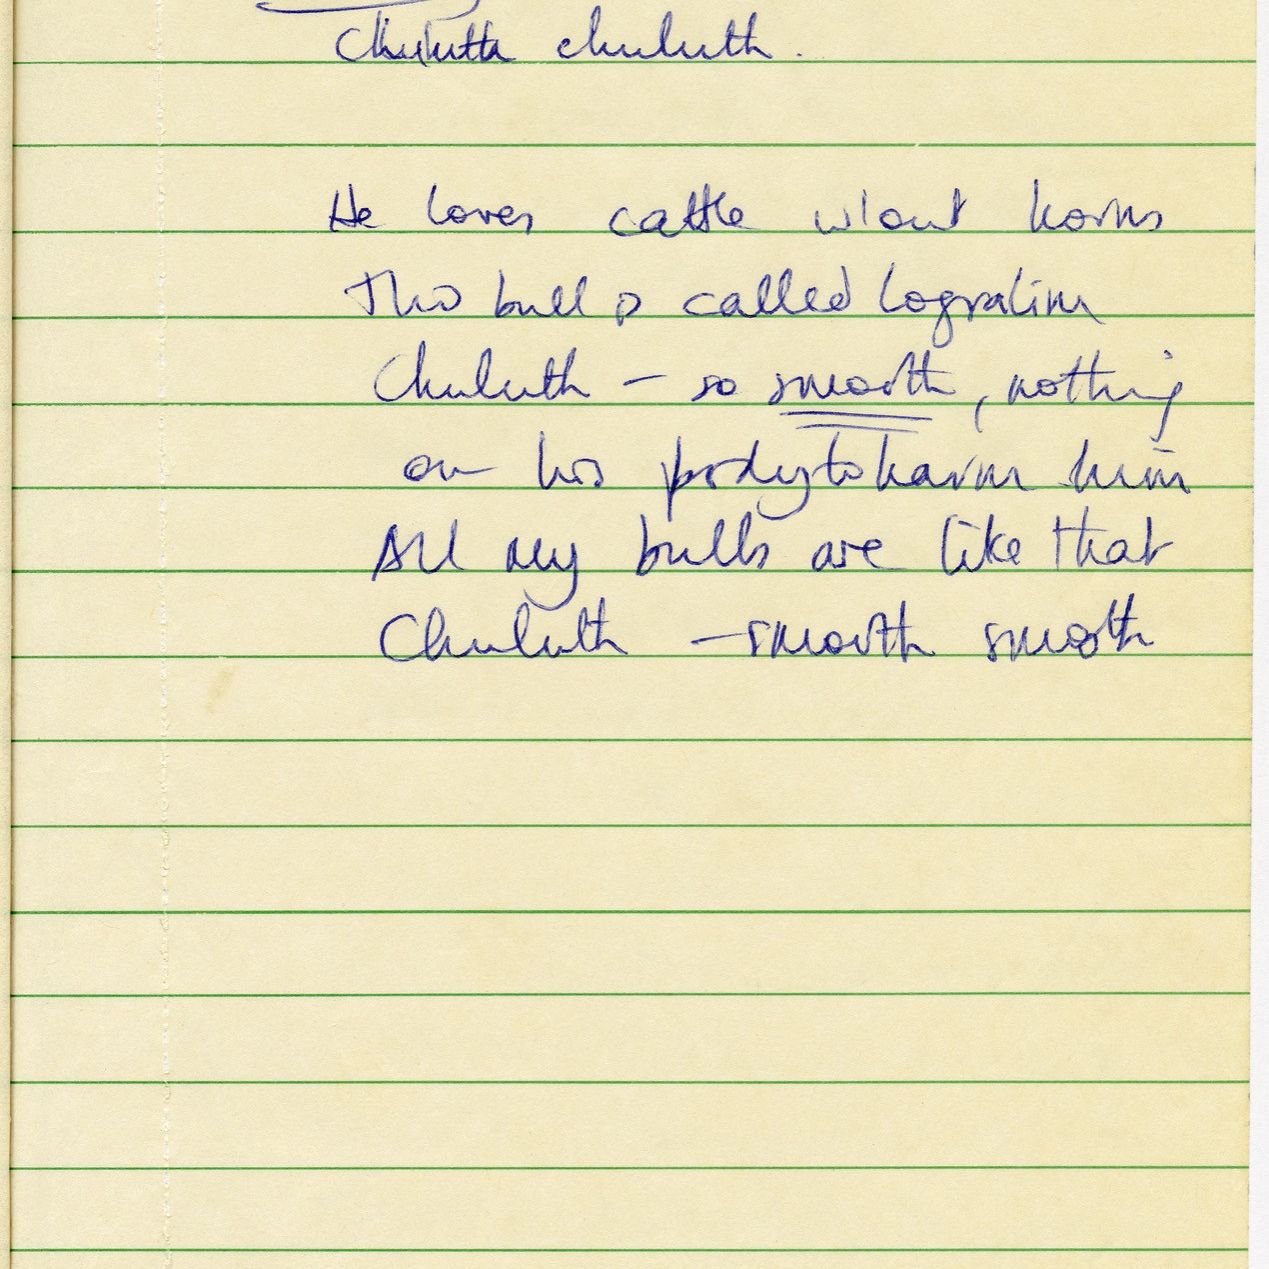 chuluth.
He loves cattle w/out horns
This bull is called Logralim
Chuluth – so smooth, nothing
on his body to harm him
All my bulls are like that
Chuluth – smooth smooth